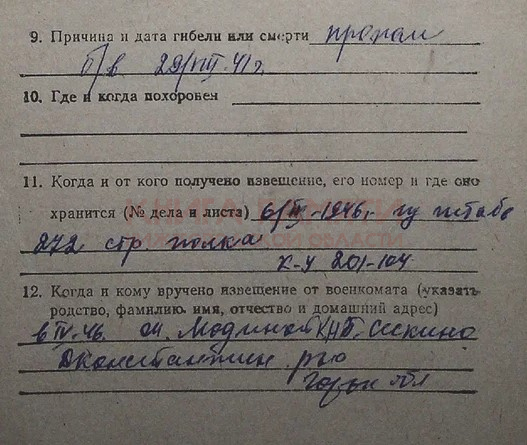 9. Причина и дата гибели или смерти пропал
б/в 29/VIII-41 г.
10. Где и когда похоронен
11. Когда и от кого получено извещение, его номер и где оно
хранится (№ дела и листа) 6/III-1946, гу штаб
272 стр. полка
к-у 201-104
12. Когда и кому вручено извещение от военкомата (указать
родство, фамилию, имя, отчество и домашний адрес)
в IV-46. м.
Дконстантин. р-ю
Горьк обл